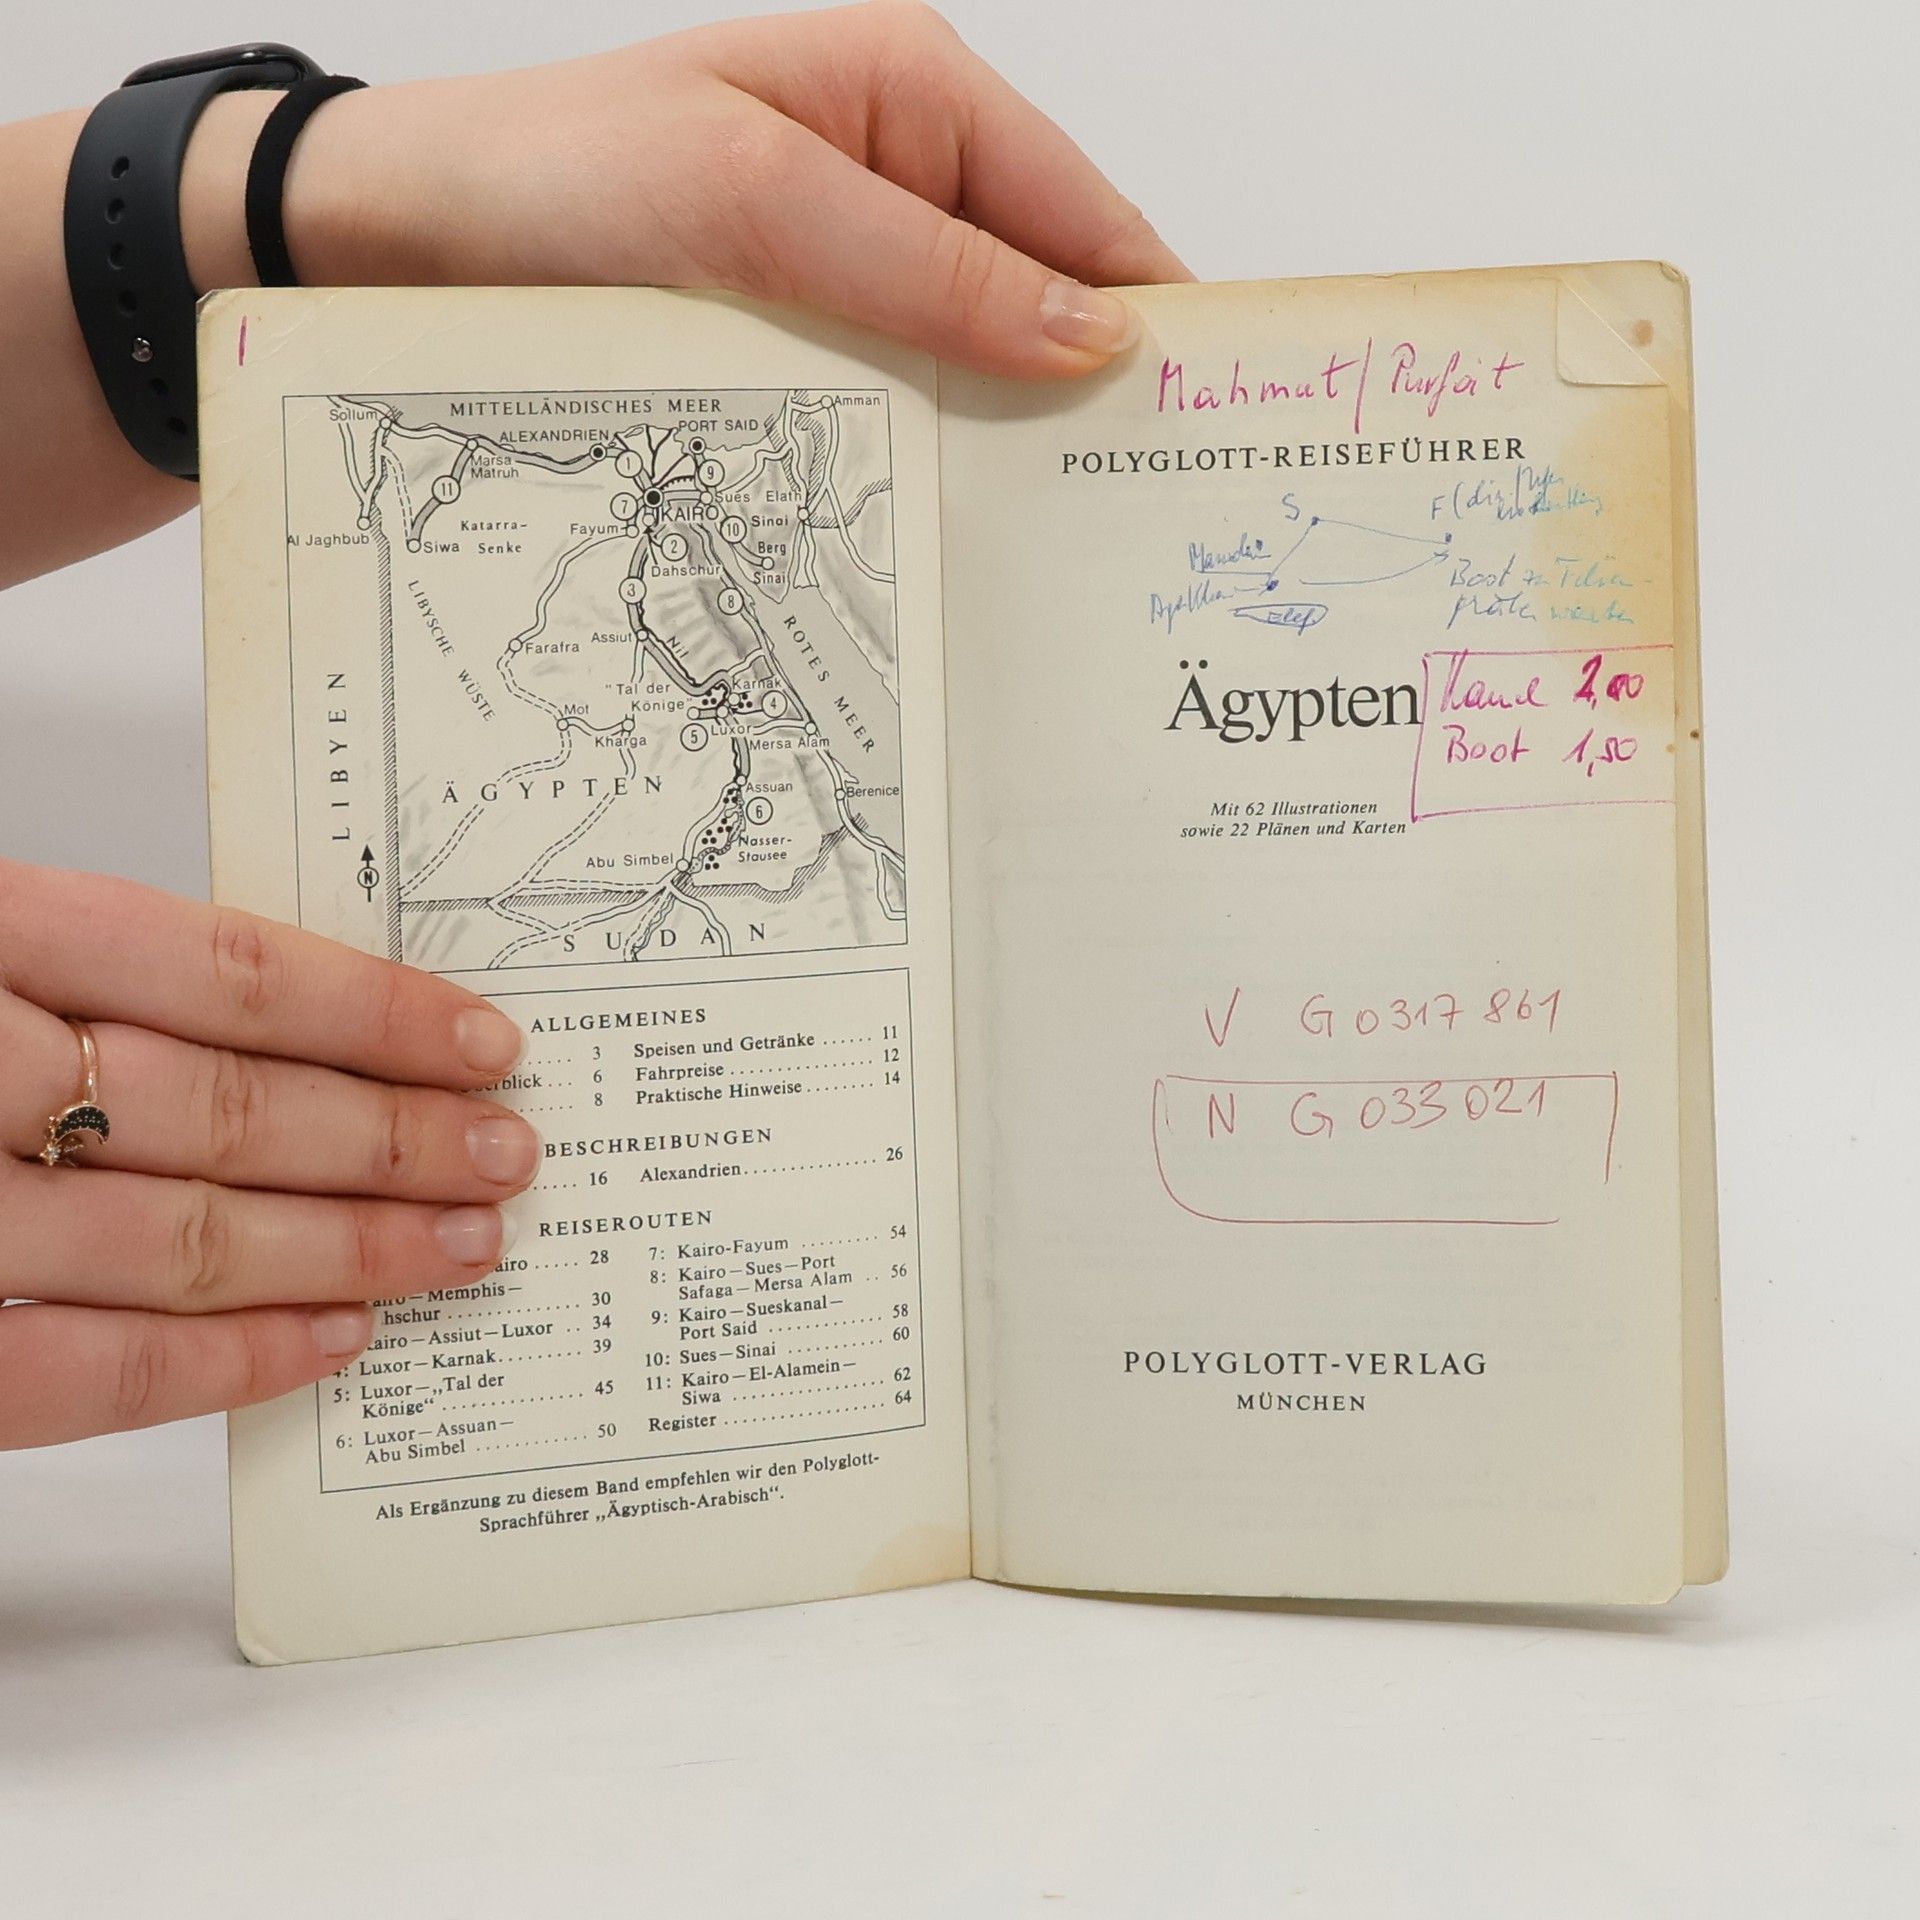 MITTELLÄNDISCHES MEER
Sollum
Amman
ALEXANDRIEN
PORT SAID
Marsa
Matruh
1
9
11
7
Sues
Elath
KAIRO
Sinai
10
Al Jaghbub
Siwa
Katarra-
Senke
Fayum
2
Berg
Sinai
Dahschur
3
8
LIBYSCHE WÜSTE
ROTES MEER
Farafra
Assiut
Nil
"Tal der
Könige"
Karnak
4
5
Luxor
Mersa Alam
Mot
Kharga
LIBYEN
ÄGYPTEN
Assuan
6
Berenice
Nasser-
Stausee
Abu Simbel
N
SUDAN
ALLGEMEINES
..... 3
erblick ... 6
...... 8
Speisen und Getränke ...... 11
Fahrpreise ................ 12
Praktische Hinweise ........ 14
BESCHREIBUNGEN
..... 16
Alexandrien ................ 26
REISEROUTEN
airo ..... 28
airo—Memphis—
hschur .............. 30
airo—Assiut—Luxor .. 34
4: Luxor—Karnak ......... 39
5: Luxor—„Tal der
Könige“ ............... 45
6: Luxor—Assuan—
Abu Simbel ............ 50
7: Kairo-Fayum ......... 54
8: Kairo—Sues—Port
Safaga—Mersa Alam .. 56
9: Kairo—Sueskanal—
Port Said .............. 58
10: Sues—Sinai ............ 60
11: Kairo—El-Alamein—
Siwa ................. 62
Register .................. 64
Als Ergänzung zu diesem Band empfehlen wir den Polyglott-
Sprachführer „Ägyptisch-Arabisch“.
Mahmut /
POLYGLOTT-REISEFÜHRER
S
F
Boot zu
Ägypten
2,00
Boot 1,50
Mit 62 Illustrationen
sowie 22 Plänen und Karten
V G 0317 861
N G 033 021
POLYGLOTT-VERLAG
MÜNCHEN